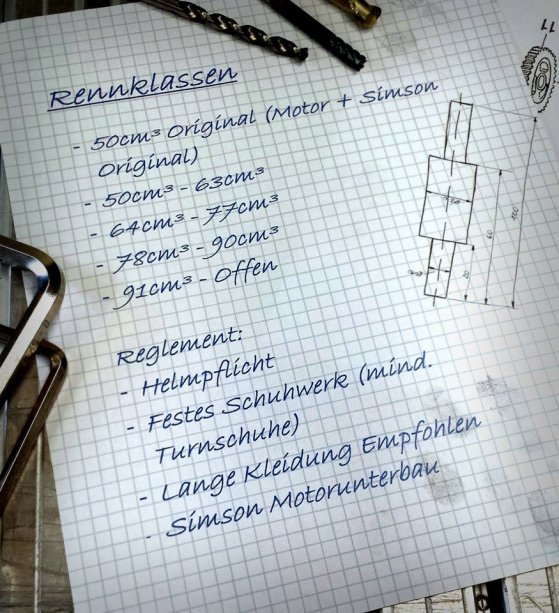 Rennklassen
- 50cm³ Original (Motor + Simson
Original)
- 50cm³ - 63cm³
- 64cm³ - 77cm³
- 78cm³ - 90cm³
- 91cm³ - Offen
Reglement:
- Helmpflicht
- Festes Schuhwerk (mind.
Turnschuhe)
- Lange Kleidung Empfohlen
- Simson Motorunterbau